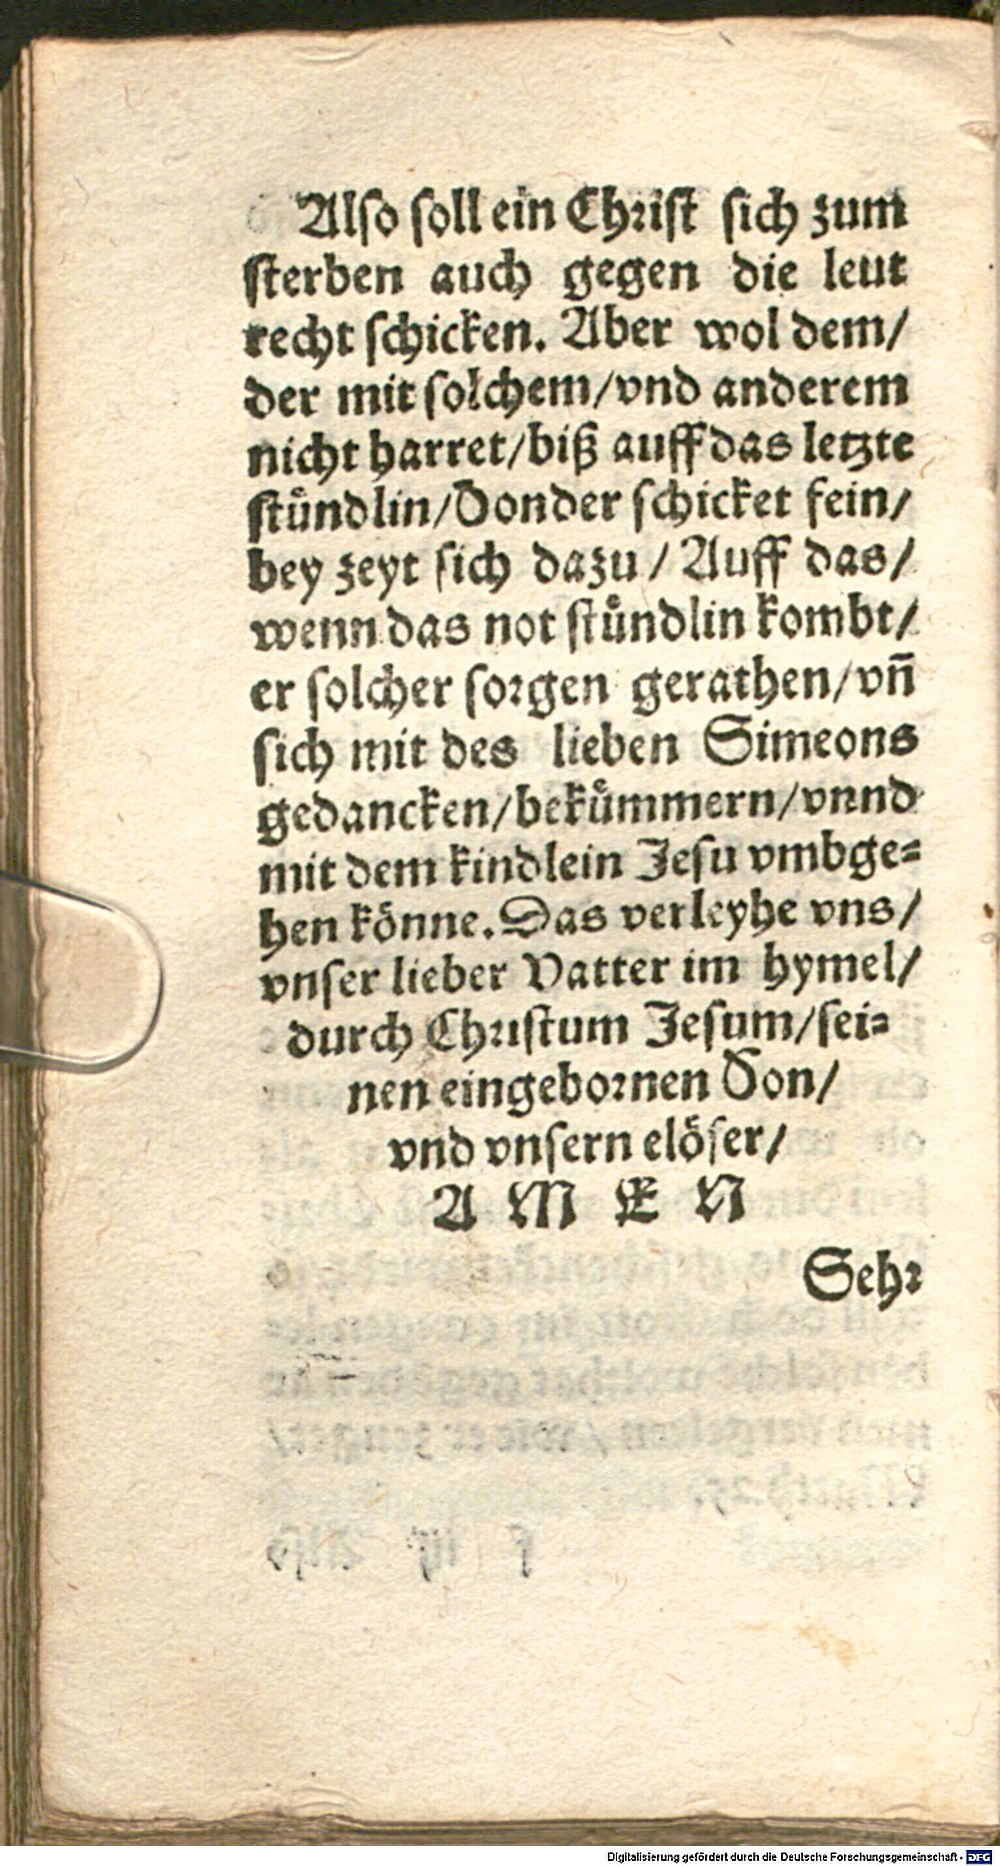 Also soll ein Christ sich zum
sterben auch gegen die leut
recht schicken. Aber wol dem/
der mit solchem/vnd anderem
nicht harret/biß auff das letzte
stuͤndlin/Sonder schicket fein/
bey zeyt sich dazu/Auff das/
wenn das not stuͤndlin kombt/
er solcher sorgen gerathen/vn̄
sich mit des lieben Simeons
gedancken/bekuͤmmern/vnnd
mit dem kindlein Jesu vmbge=
hen koͤnne. Das verleyhe vns/
vnser lieber Vatter im hymel/
durch Christum Jesum/sei=
nen eingebornen Son/
vnd vnsern eloͤser/
A M E N
Sehr
Digitalisierung gefördert durch die Deutsche Forschungsgemeinschaft - DFG